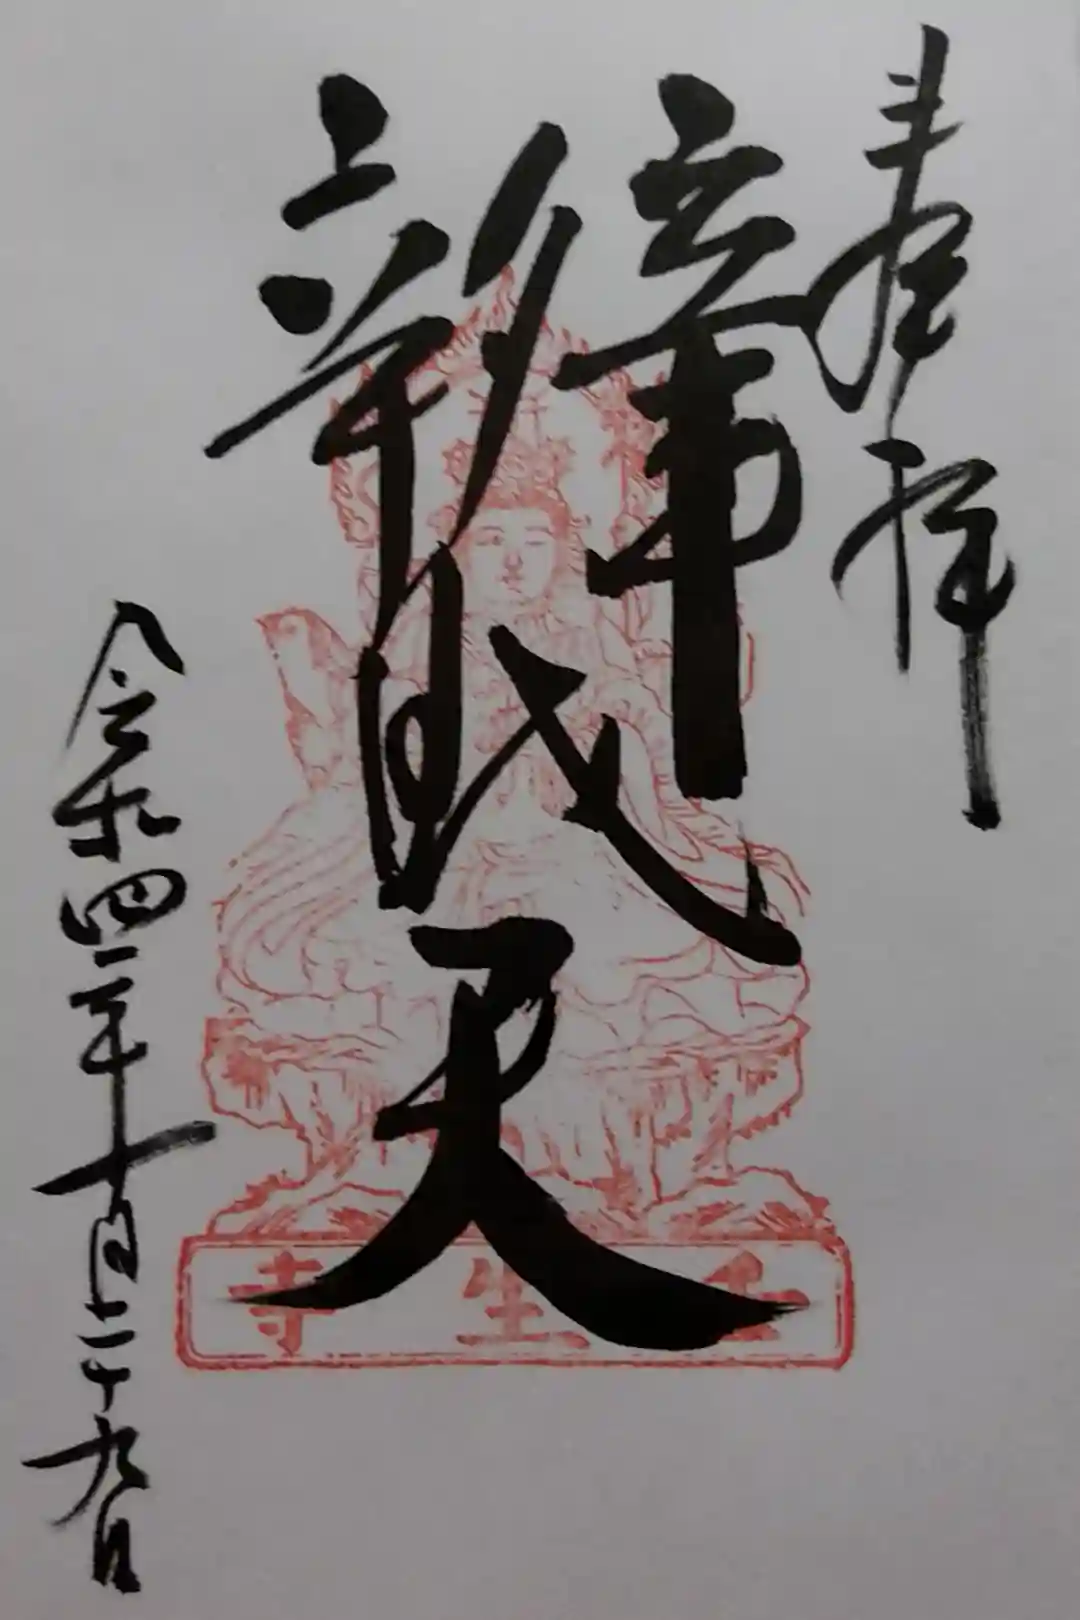 奉拝
辨財天
令和四年十月二十九日
壬生寺